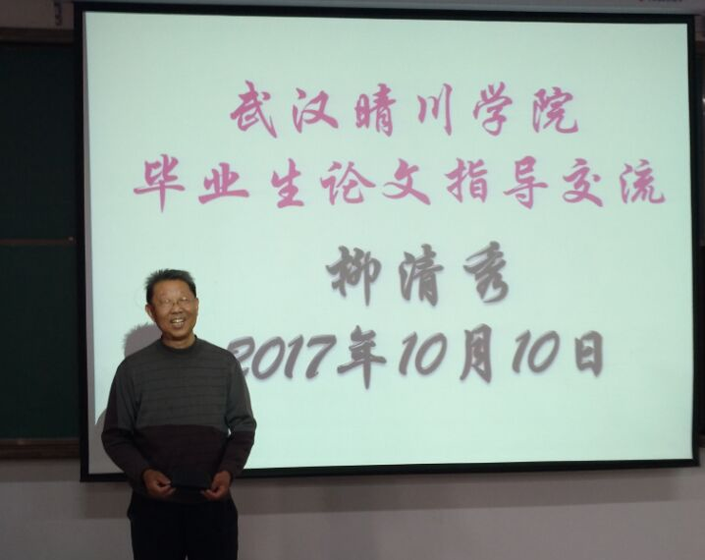 武汉晴川学院
毕业生论文指导交流
柳清秀
2017年10月10日